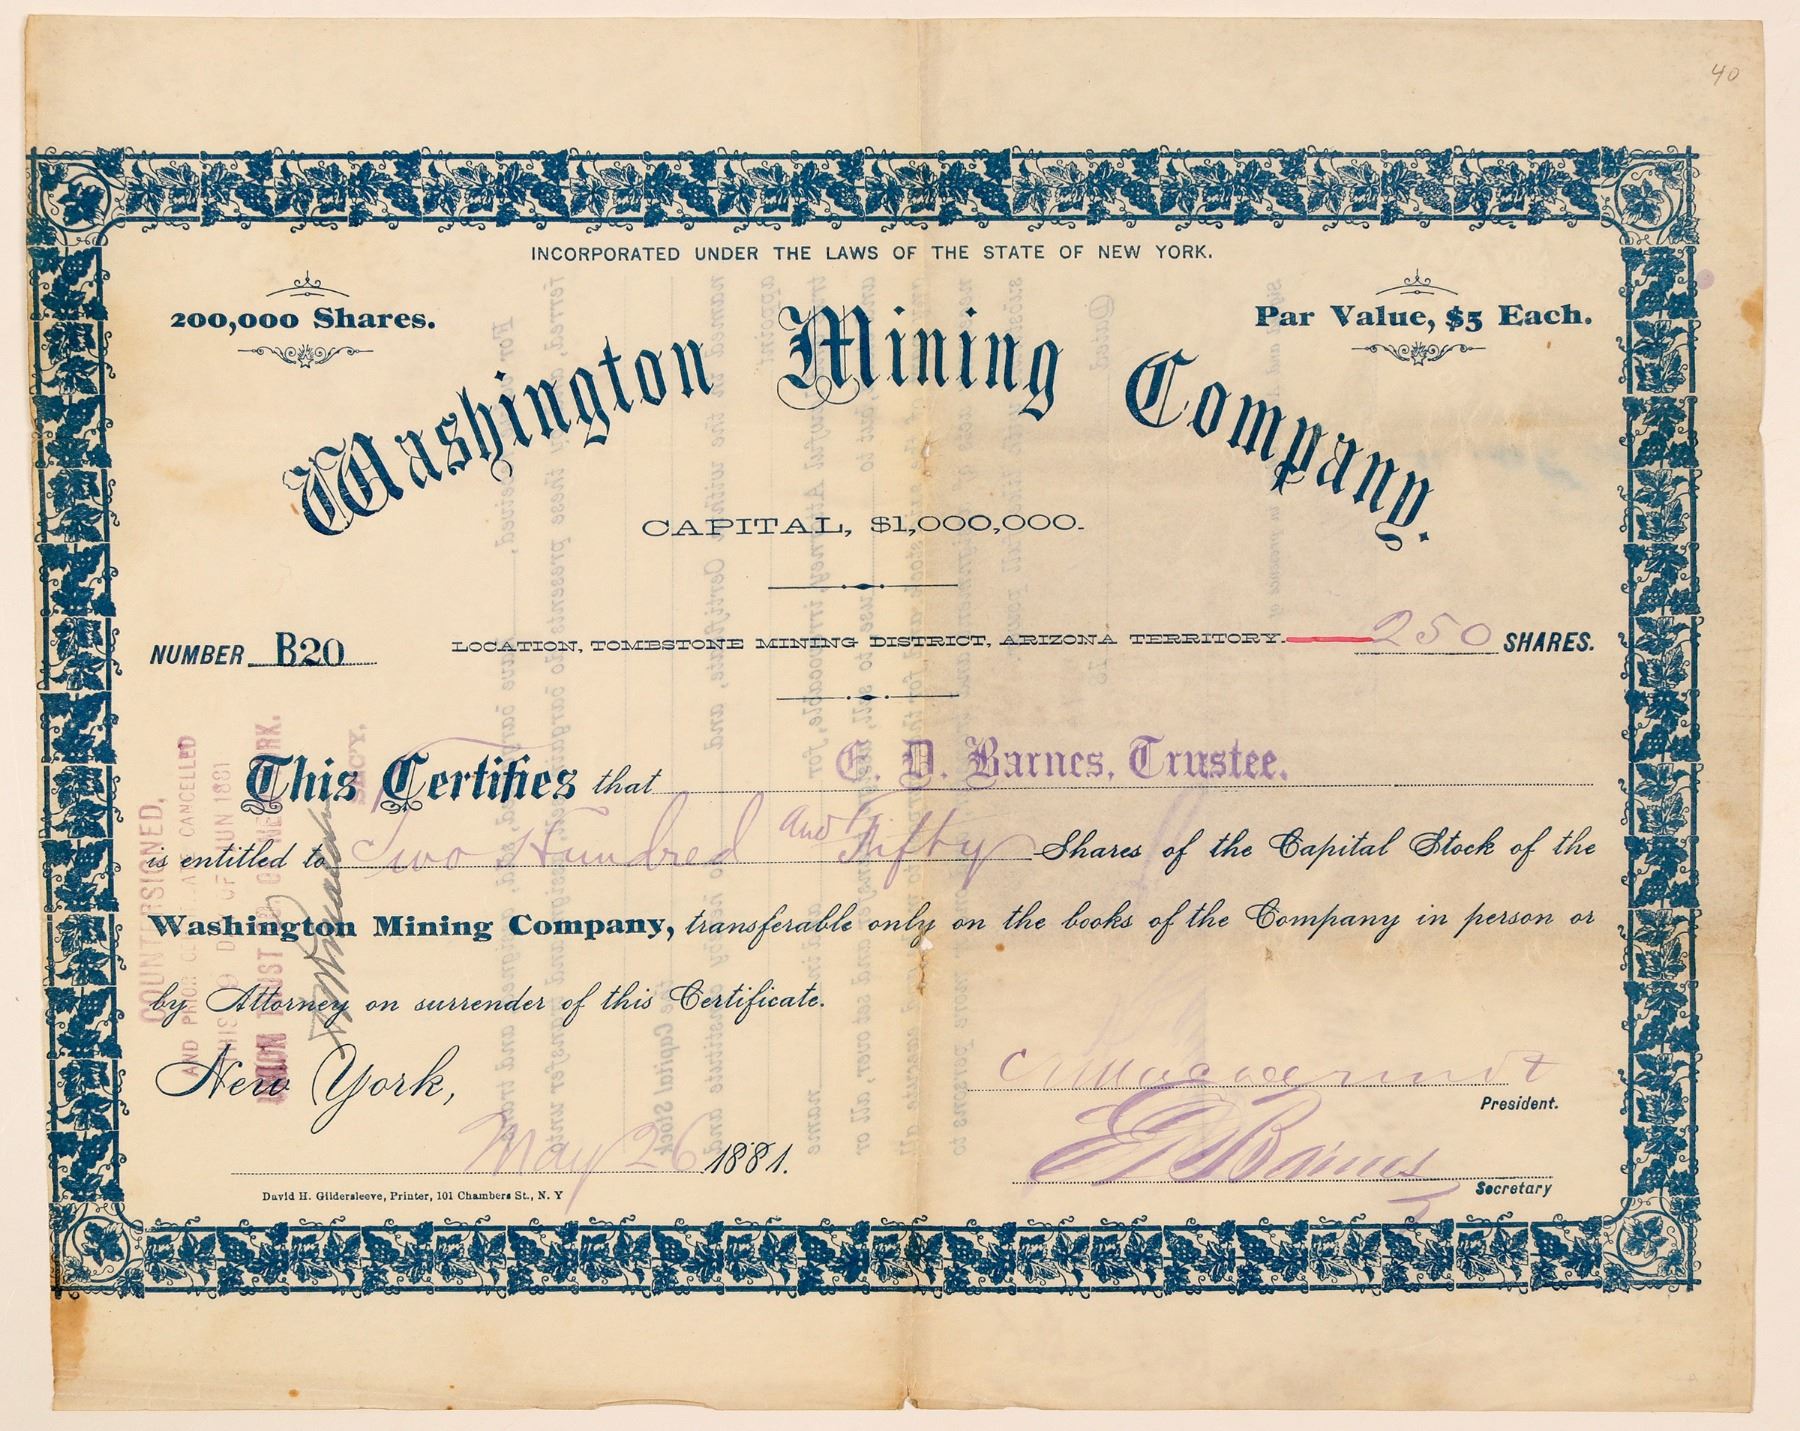 40
INCORPORATED UNDER THE LAWS OF THE STATE OF NEW YORK.
200,000 Shares.
Par Value, $5 Each.
Washington Mining Company.
CAPITAL, $1,000,000.
NUMBER B20
LOCATION, TOMBSTONE MINING DISTRICT, ARIZONA TERRITORY.
250 SHARES.
This Certifies that E. D. Barnes, Trustee.
is entitled to Two Hundred and Fifty Shares of the Capital Stock of the
Washington Mining Company, transferable only on the books of the Company in person or
by Attorney on surrender of this Certificate.
New York,
May 26 1881.
President.
E D Barnes
Secretary
David H. Gildersleeve, Printer, 101 Chambers St., N. Y
COUNTERSIGNED,
AND PRIOR CERTIFICATE CANCELLED
THIS DAY OF JUN 1881
UNION TRUST CO. NEW YORK.
SECY.